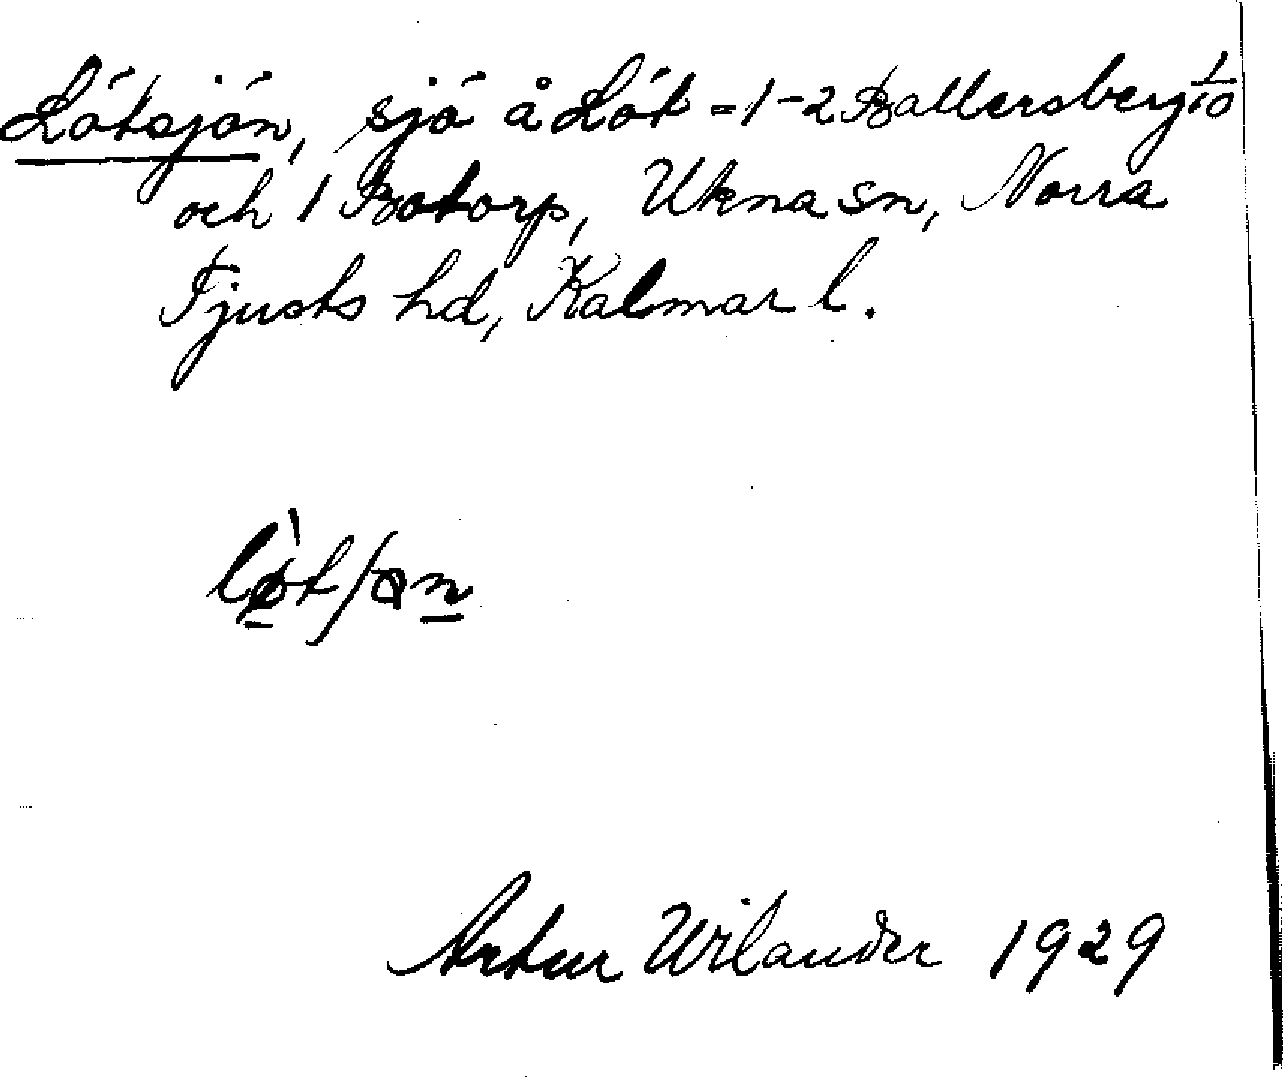 Lötsjön, sjö å Löt = 1-2 Ballersberg 1/10
och 1 Botorp, Ukna sn, Norra
Tjusts hd, Kalmar l.
Artur Wilander 1929